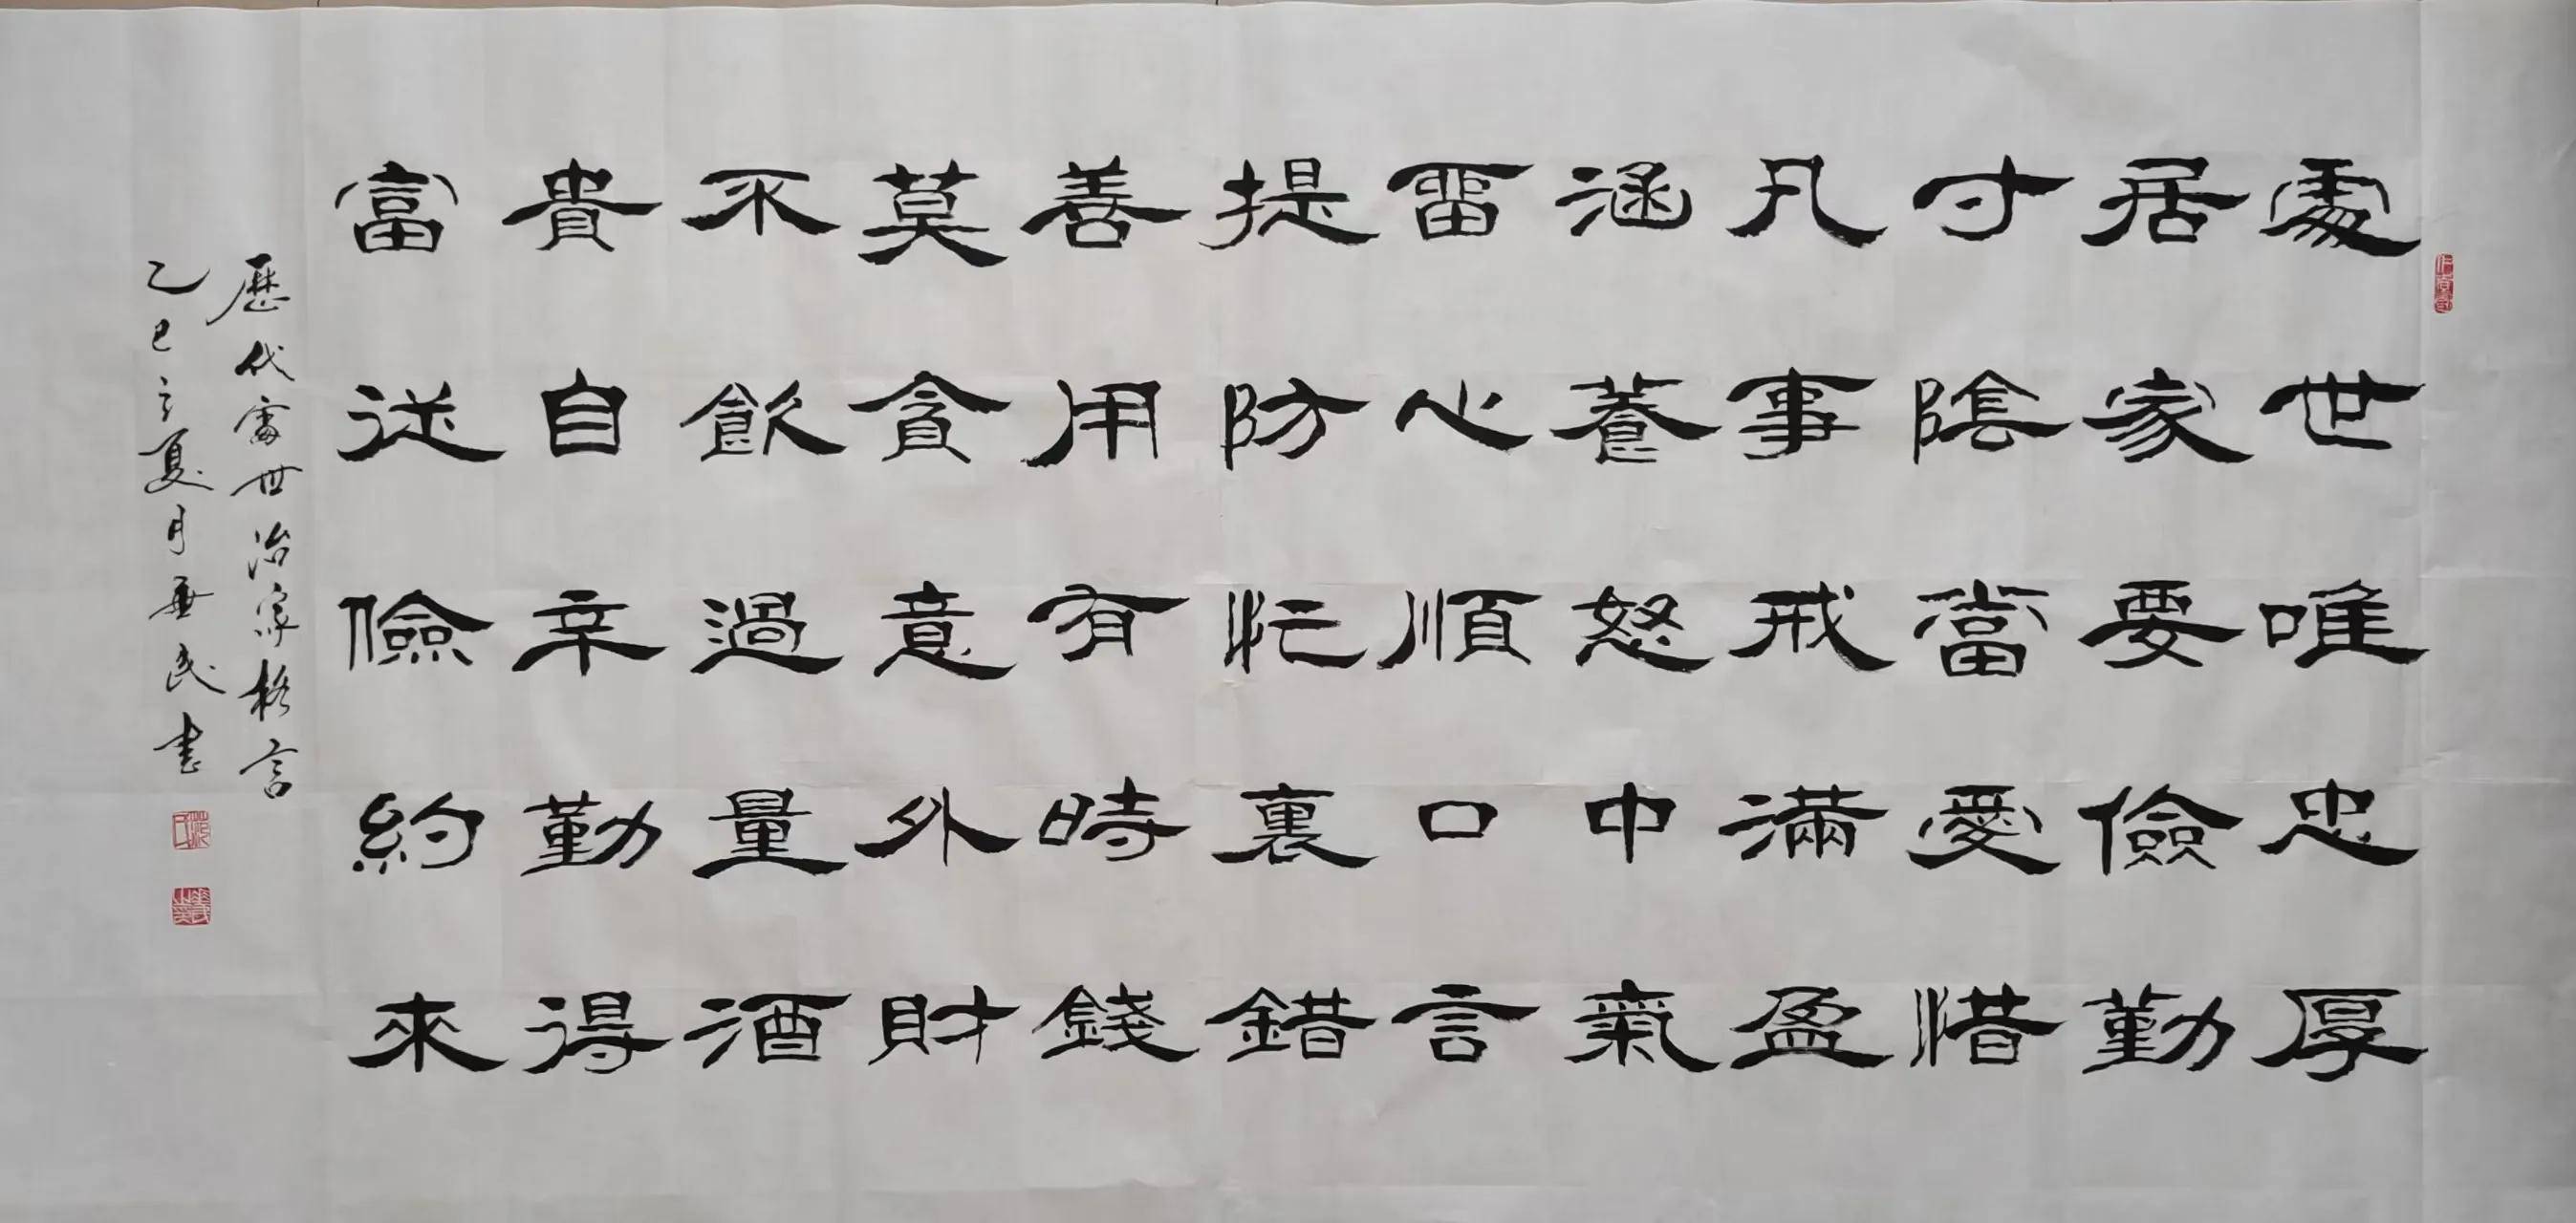 處世唯忠厚
居家要儉勤
寸陰當愛惜
凡事戒滿盈
涵養怒中氣
留心順口言
提防忙裏錯
善用有時錢
莫貪意外財
不飲過量酒
貴自辛勤得
富從儉約來
歷代處世治家格言
乙巳之夏月亞民書